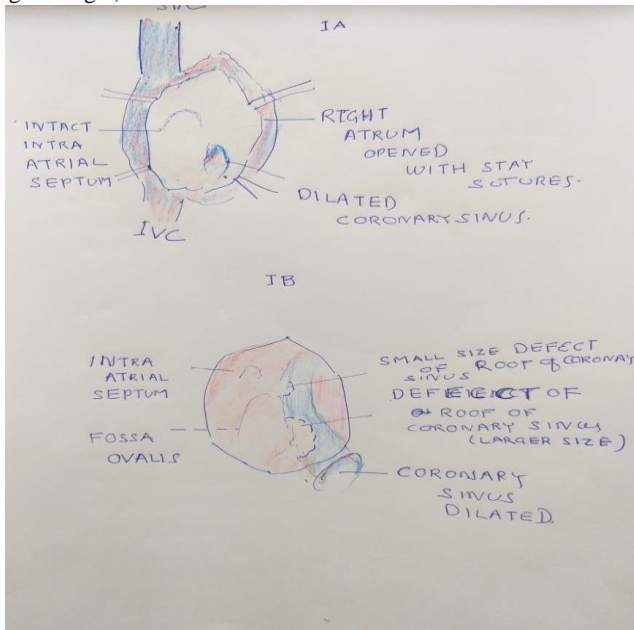 SVC
IA
INTACT
INTRA
ATRIAL
SEPTUM
RIGHT
ATRUM
OPENED
WITH STAY
SUTURES.
DILATED
CORONARY SINUS.
IVC
IB
INTRA
ATRIAL
SEPTUM
FOSSA
OVALIS
SMALL SIZE DEFECT
OF ROOF of CORONAY
SINUS
DEFEECT OF
ROOF OF
CORONARY SINUS
(LARGER SIZE)
CORONSARY
SINUS
DILATED.